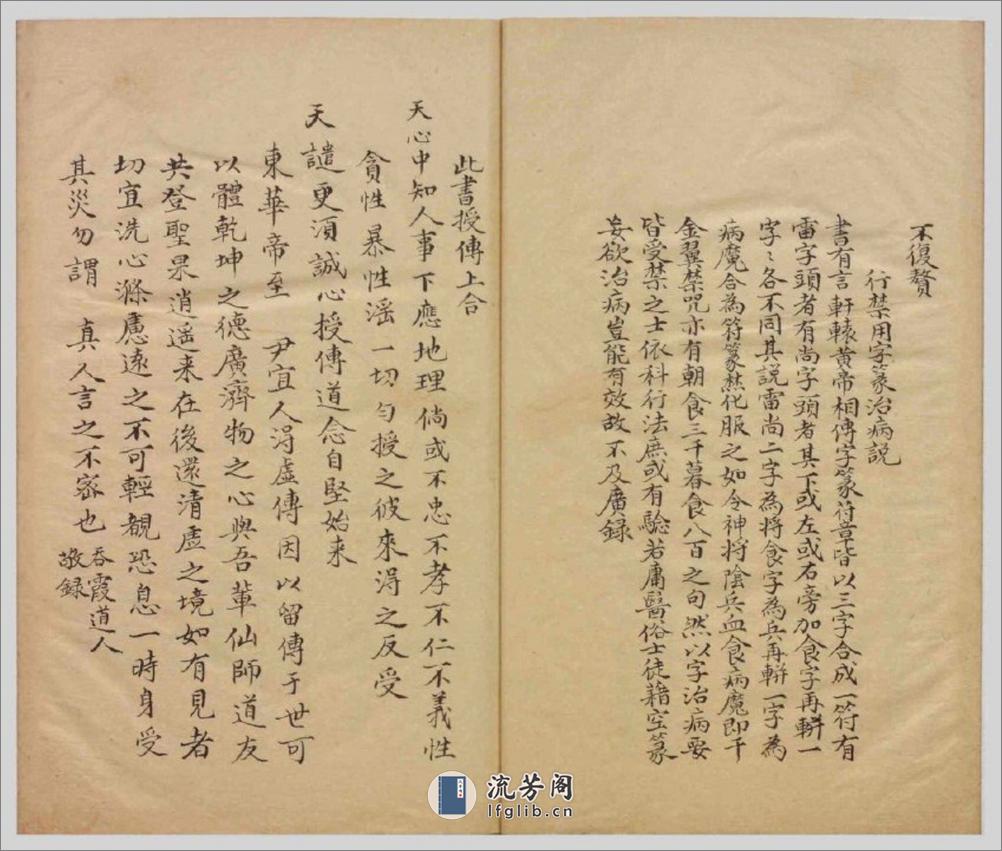 不復贅
行禁用字篆治病説
書有言軒轅黄帝相傳字篆符章皆以三字合成一符有
雷字頭者有尚字頭者其下或左或右旁加食字再輧一
字〻各不同其説雷尚二字為將食字為兵再輧一字為
病魔合為符篆焚化服之如令神將陰兵血食病魔即干
金翼禁咒亦有朝食三千暮食八百之句然以字治病要
皆受禁之士依科行法庶或有驗若庸醫俗士徒藉空篆
妄欲治病豈能有效故不及廣録
此書授傳上合
天心中知人事下應地理倘或不忠不孝不仁不義性
貪性暴性滛一切匀授之彼來淂之反受
天譴更須誠心授傳道念自堅始来
東華帝至 尹宜人淂虛傳因以留傳于世可
以體乾坤之德廣濟物之心與吾軰仙師道友
共登聖果逍遥来在後還清虛之境如有見者
切宜洗心滌慮遠之不可輕覩恐息一時身受
其災勿謂 真人言之不宻也
吞霞道人
敬録
流芳阁
lfglib.cn